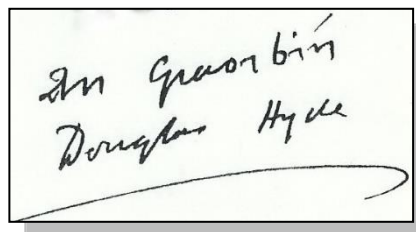 An Craoibín
Douglas Hyde